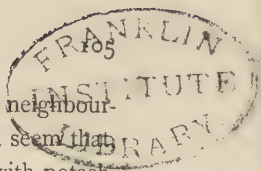 105
FRANKLIN
INSTITUTE
LIBRARY
neighbour-
seem that
with potash